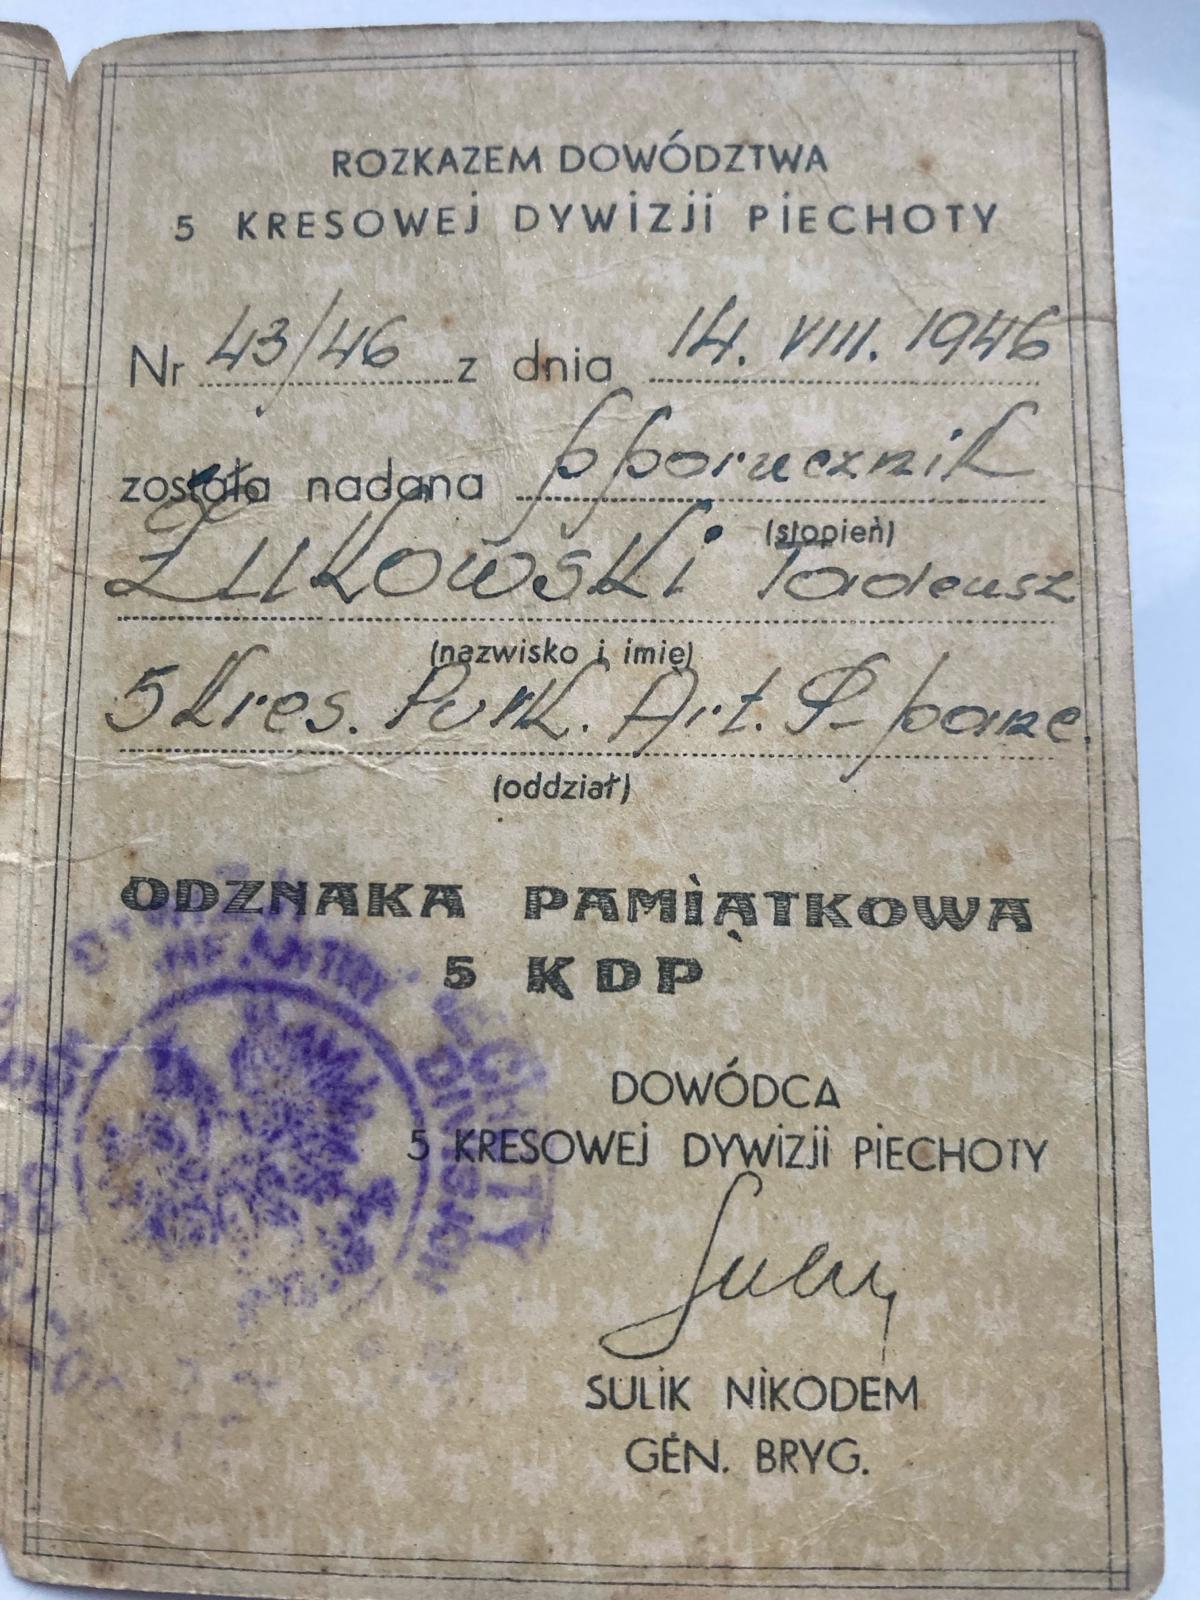 ROZKAZEM DOWÓDZTWA
5 KRESOWEJ DYWIZJI PIECHOTY
Nr 43/46 z dnia 14. VIII. 1946
została nadana ppporucznik
(stopień)
Żukowski Tadeusz
(nazwisko i imię)
5 Kres. Pułk. Art. P-panc.
(oddział)
ODZNAKA PAMIĄTKOWA
5 KDP
DOWÓDCA
5 KRESOWEJ DYWIZJI PIECHOTY
SULIK NIKODEM
GEN. BRYG.
INFANTRY DIVISION